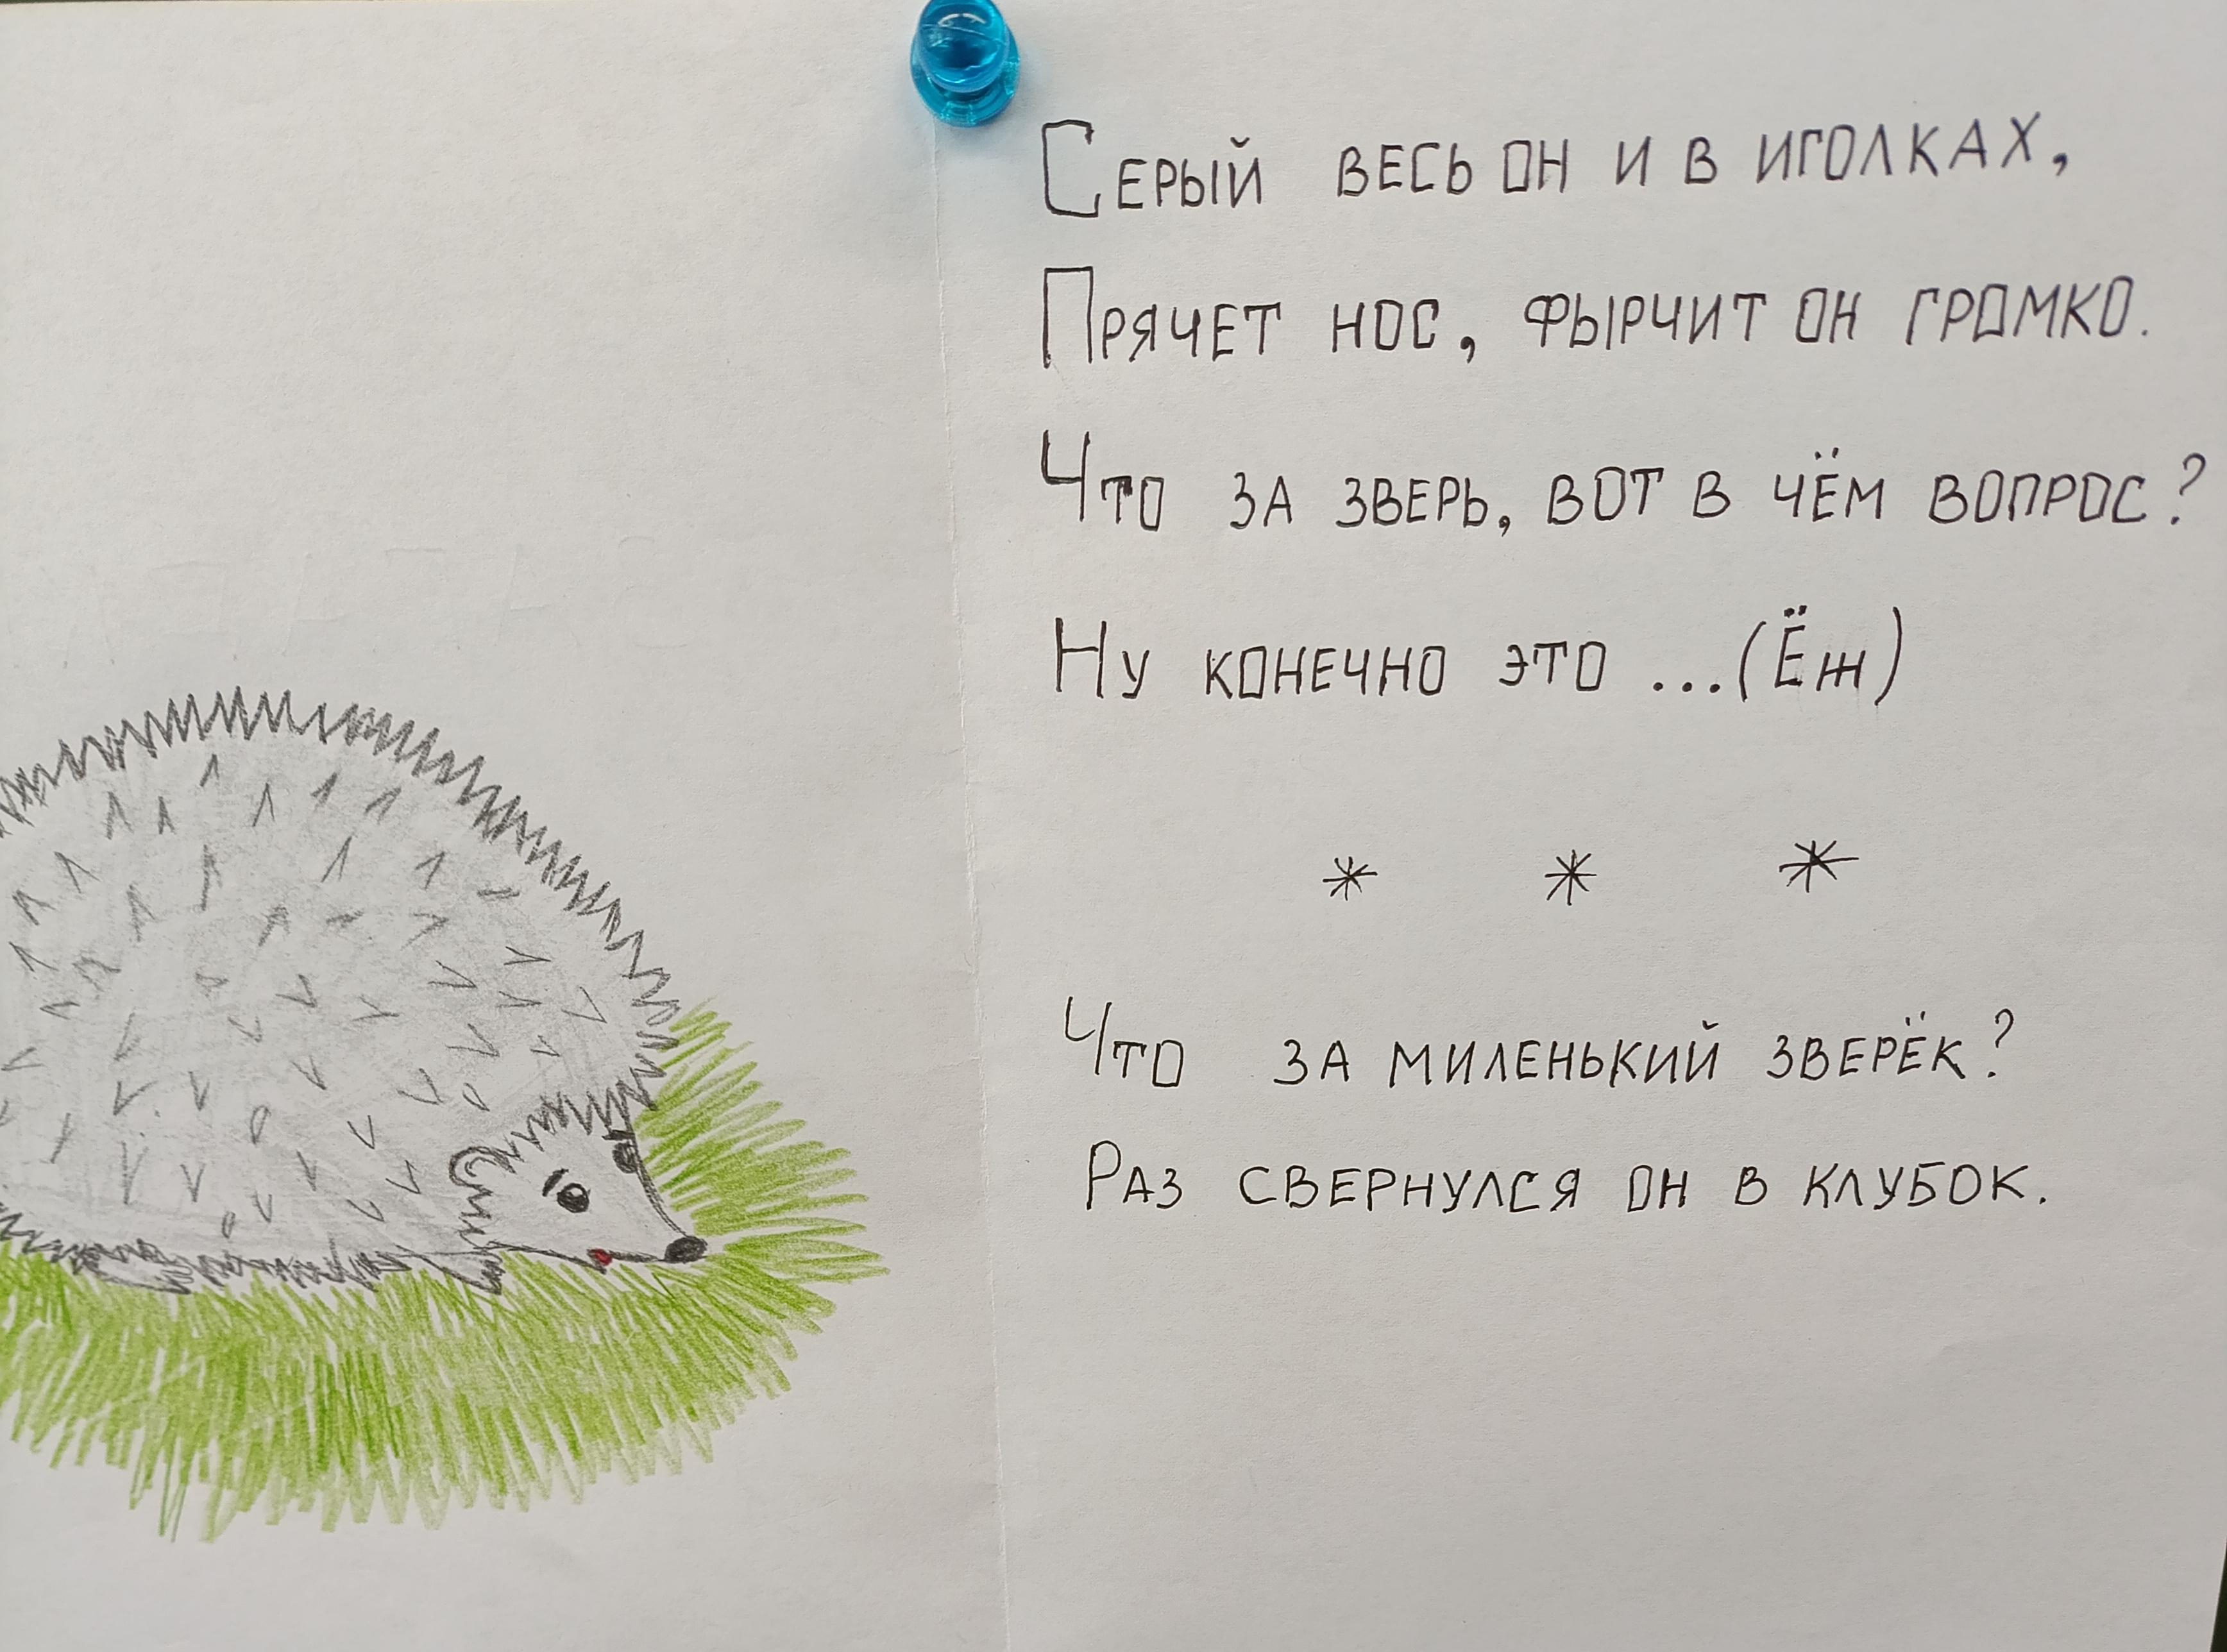 Серый весь он и в иголках,
Прячет нос, фырчит он громко.
Что за зверь, вот в чём вопрос?
Ну конечно это ...(Ёж)
* * *
Что за миленький зверёк?
Раз свернулся он в клубок.